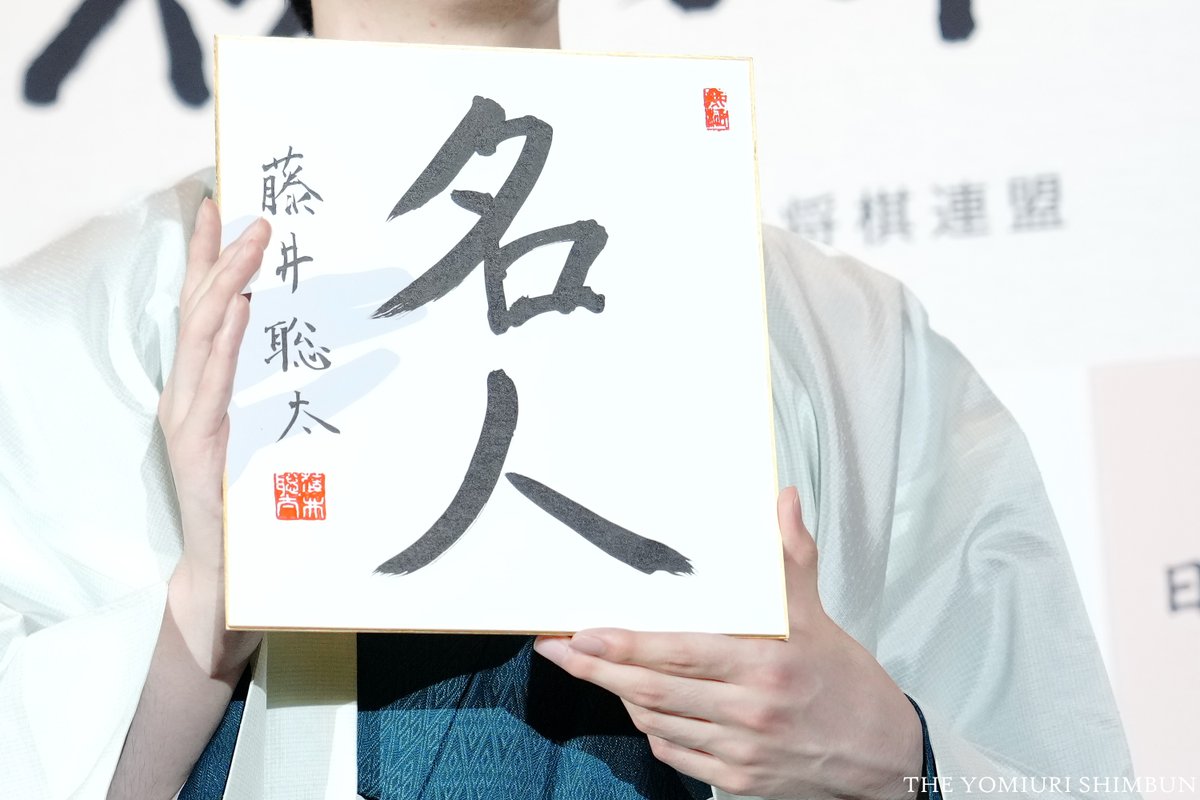 名人
藤井聡太
藤井
聡太
将棋連盟
THE YOMIURI SHIMBUN